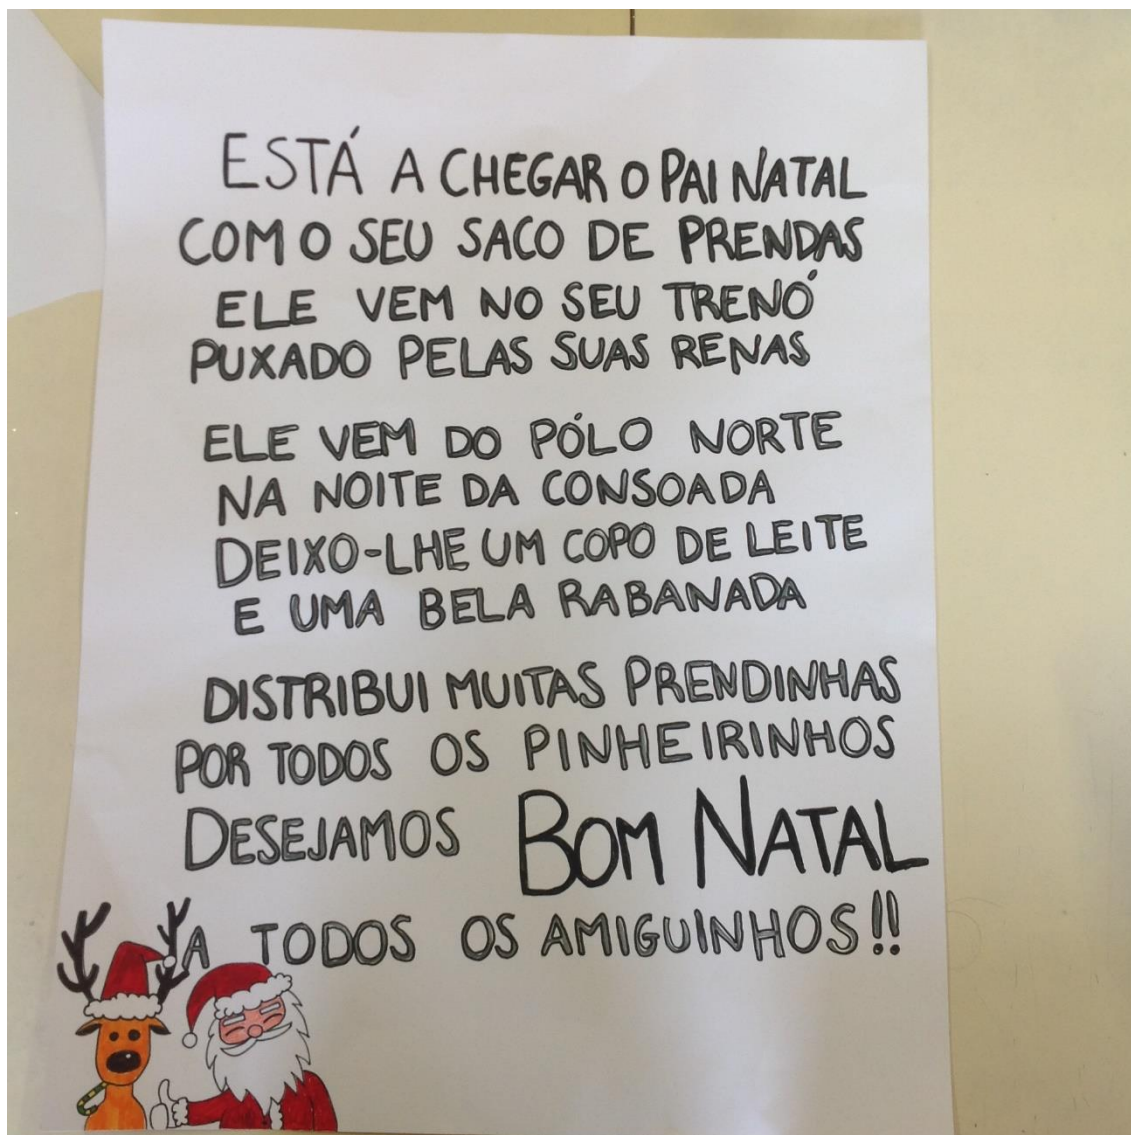 ESTÁ A CHEGAR O PAI NATAL
COM O SEU SACO DE PRENDAS
ELE VEM NO SEU TRENÓ
PUXADO PELAS SUAS RENAS
ELE VEM DO PÓLO NORTE
NA NOITE DA CONSOADA
DEIXO-LHE UM COPO DE LEITE
E UMA BELA RABANADA
DISTRIBUI MUITAS PRENDINHAS
POR TODOS OS PINHEIRINHOS
DESEJAMOS BOM NATAL
A TODOS OS AMIGUINHOS!!